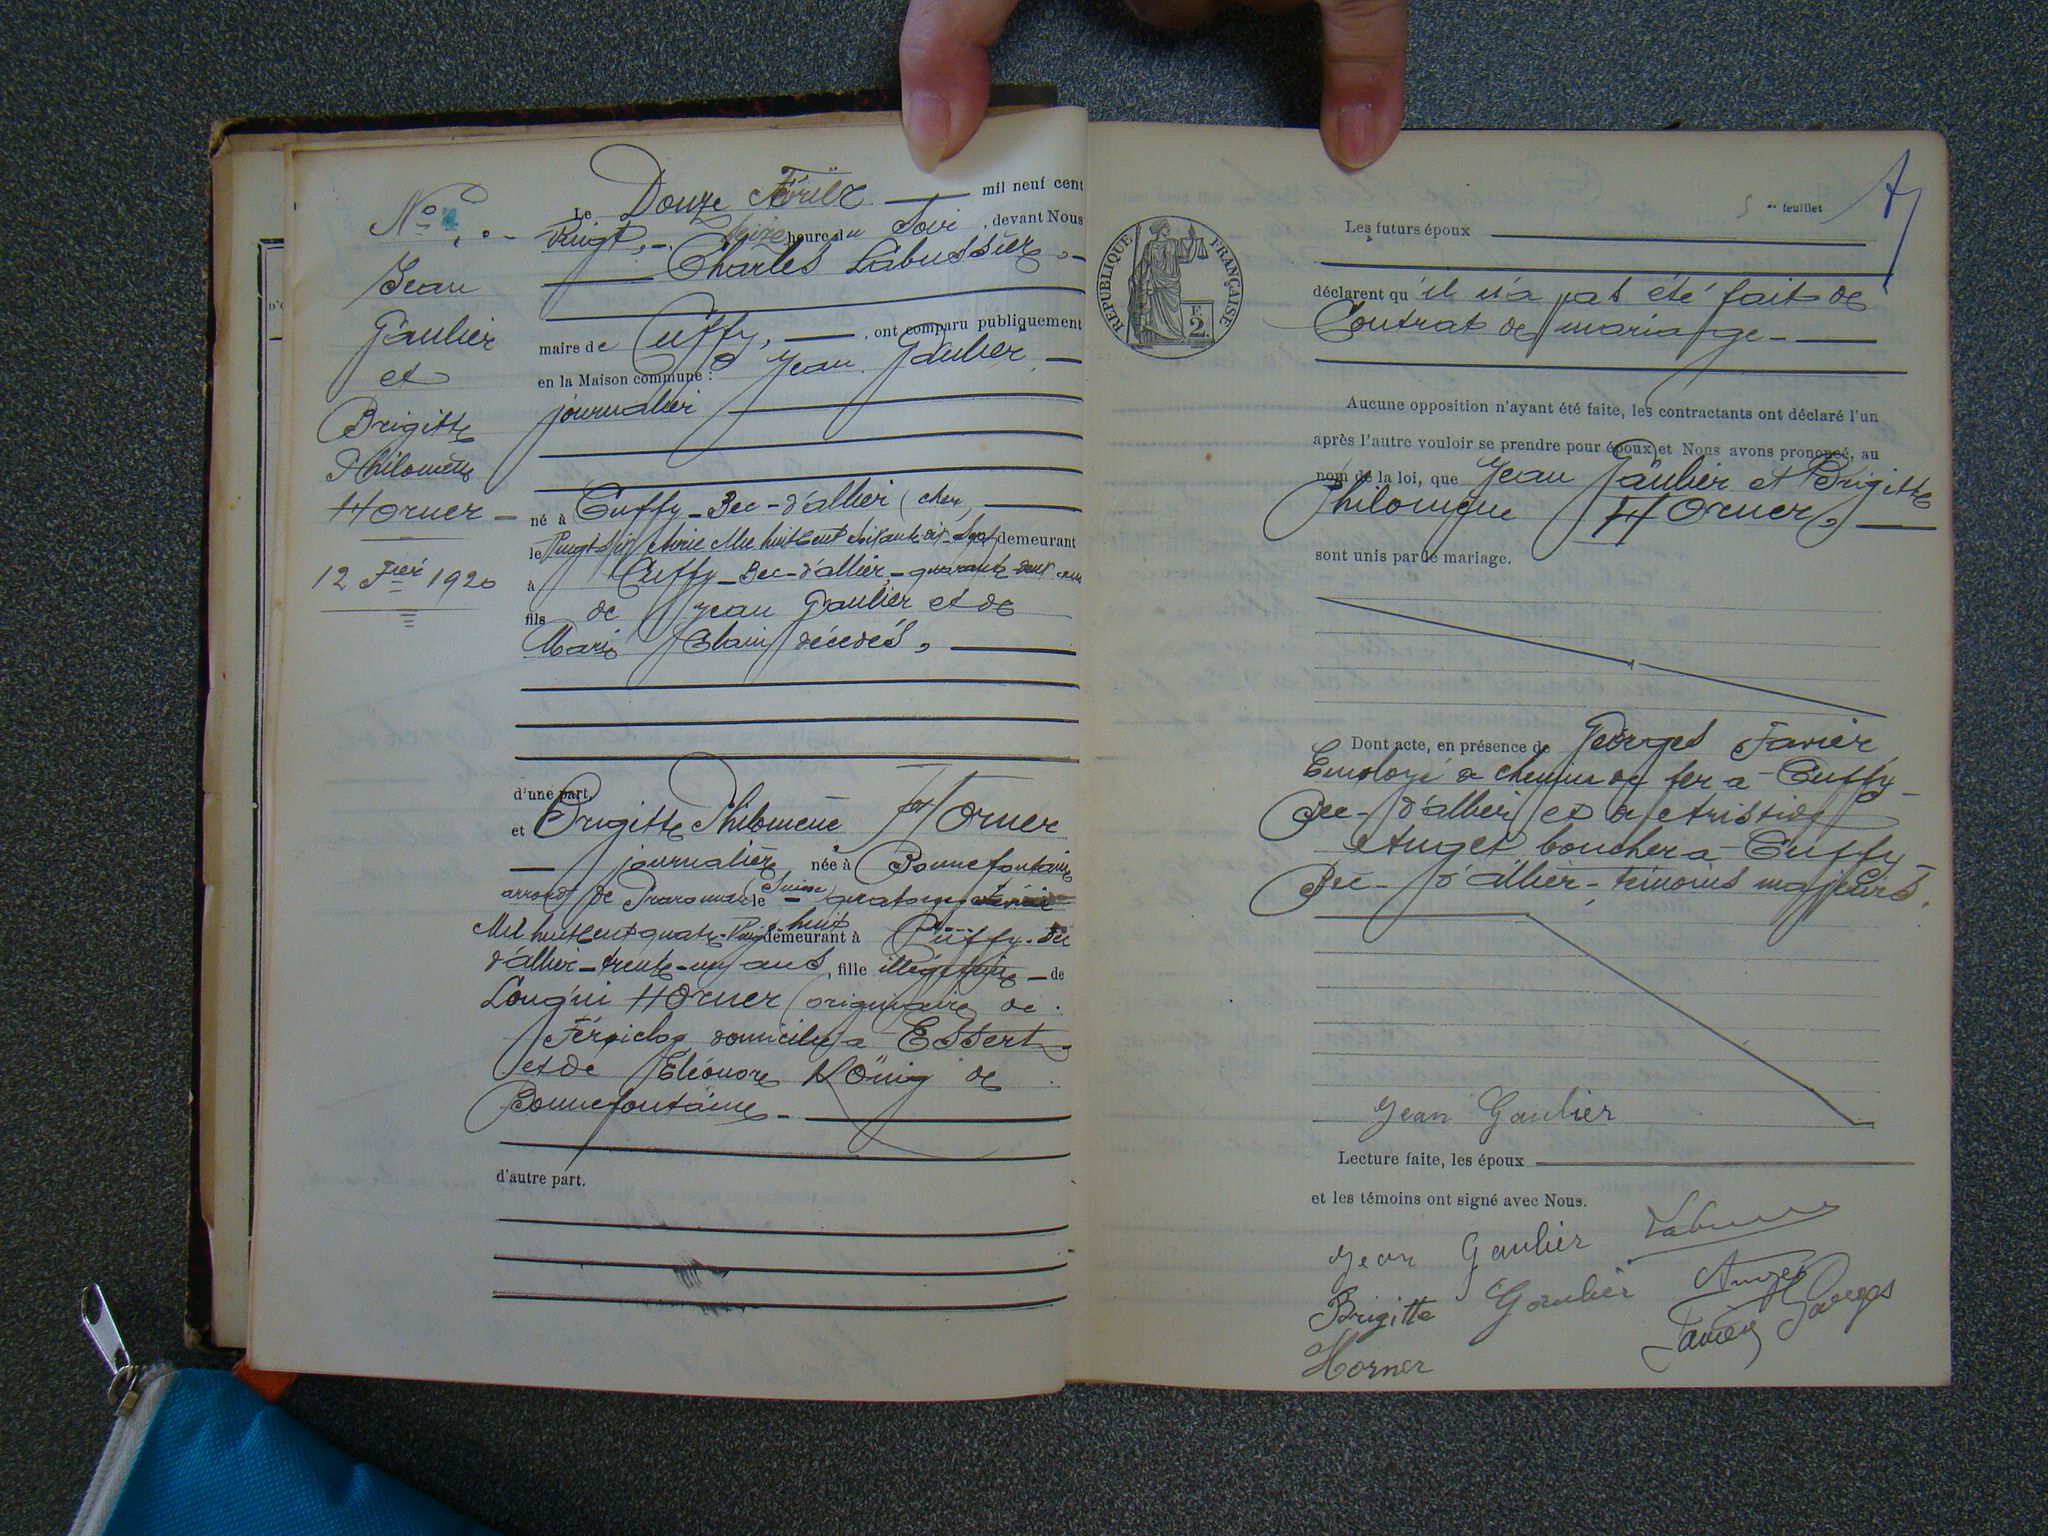 No 4
Jean
Gaulier
et
Brigitte
Philomène
Horner
12 Fier 1920
Le Douze Février mil neuf cent
Vingt, Seize heure du Soir, devant Nous
Charles Labussière
maire de Cuffy, ont comparu publiquement
en la Maison commune : Jean Gaulier
journalier
né à Cuffy-Bec-d'allier (cher)
le Mil huit cent soixante dix-sept demeurant
à Cuffy-Bec-d'allier, quarante deux ans
fils de Jean Gaulier et de
Marie décédés,
d'une part.
et Brigitte Philomène Horner
journalière née à Bonnefontaine
arrondt de Praroman (Suisse) le quatorze
Mil huit cent quatre-Vingt-huit demeurant à Cuffy-Bec
d'allier-trente-un ans, fille illégitime de
Longin Horner (originaire de
domicilié à Essert
et de Eléonore König de
Bonnefontaine
d'autre part.
RÉPUBLIQUE FRANÇAISE
F.
2.
5 me feuillet
Les futurs époux
déclarent qu'il n'a pas été fait de
Contrat de mariage
Aucune opposition n'ayant été faite, les contractants ont déclaré l'un
après l'autre vouloir se prendre pour époux et Nous avons prononcé, au
nom de la loi, que Jean Gaulier et Brigitte
Philomène Horner,
sont unis par le mariage.
Dont acte, en présence de Georges Favier
Employé a chemin de fer a Cuffy-
Bec-d'allier et a Aristide
Auger boucher a Cuffy-
Bec-d'allier-témoins majeurs.
Jean Gaulier
Lecture faite, les époux
et les témoins ont signé avec Nous.
Jean Gaulier
Brigitte Gaulier Auger
Horner Favier Georges